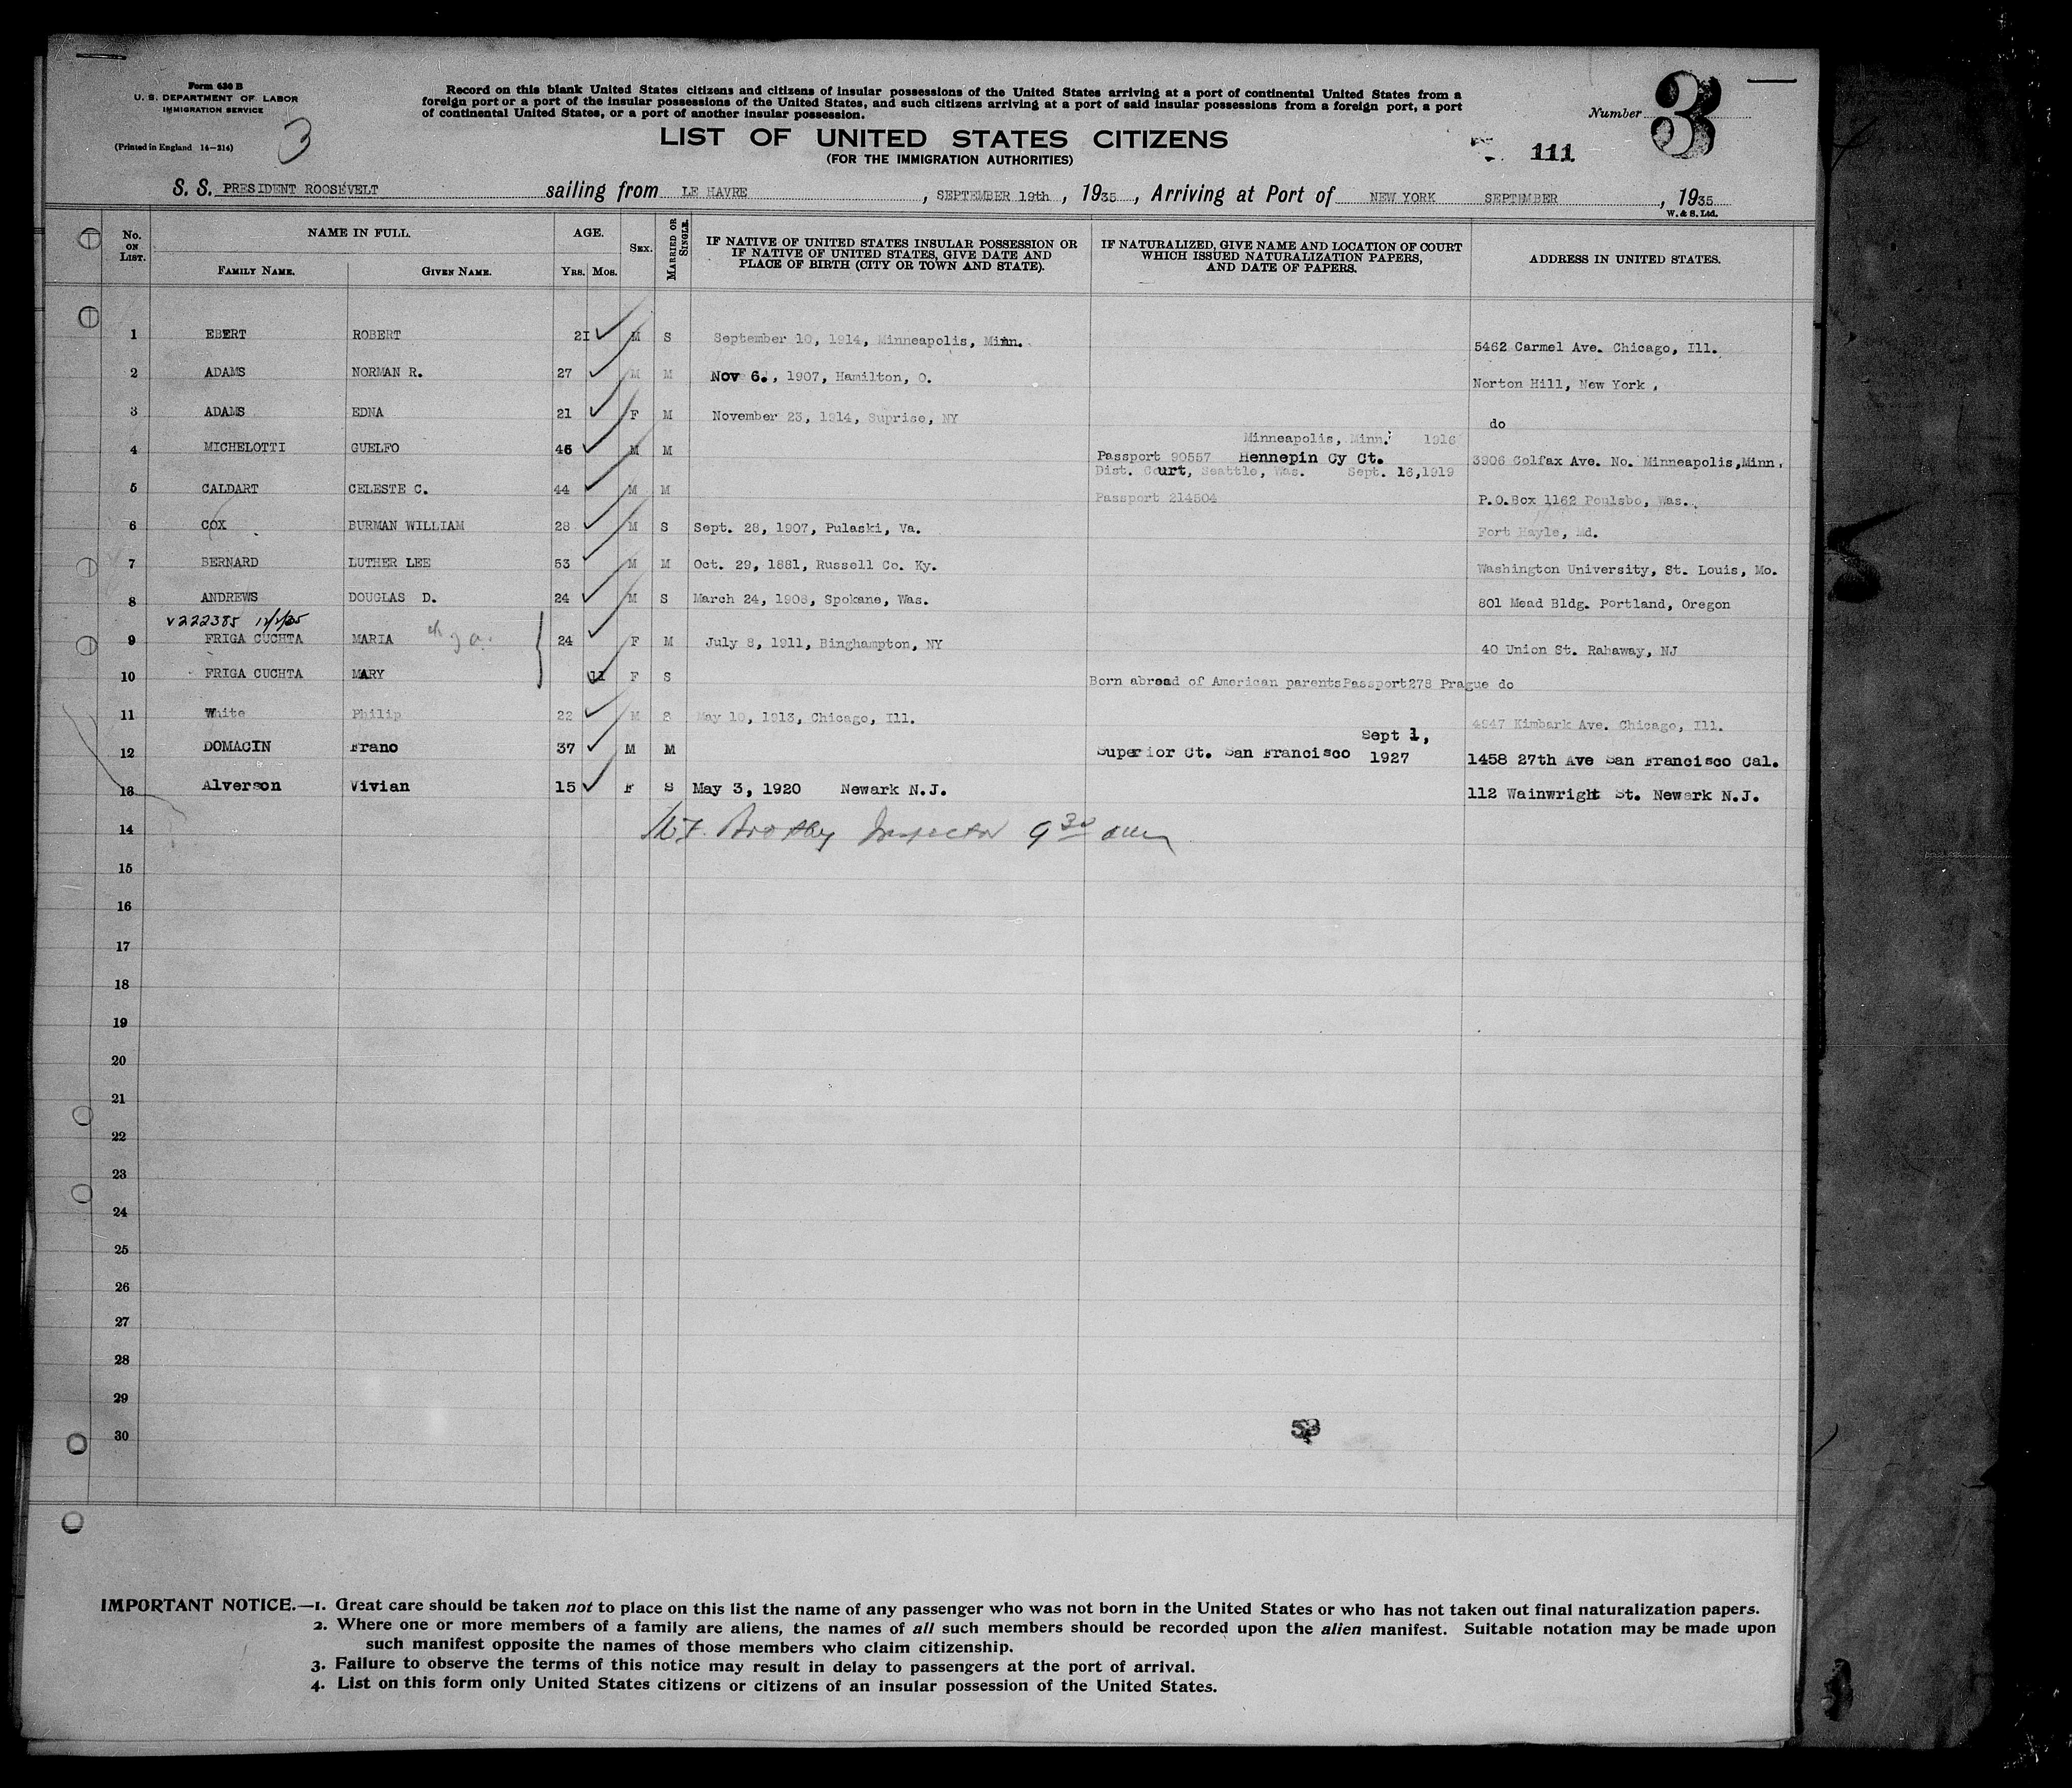 Form 630 B
U. S. DEPARTMENT OF LABOR
IMMIGRATION SERVICE
(Printed in England 14—314)
3
Record on this blank United States citizens and citizens of insular possessions of the United States arriving at a port of continental United States from a
foreign port or a port of the insular possessions of the United States, and such citizens arriving at a port of said insular possessions from a foreign port, a port
of continental United States, or a port of another insular possession.
Number 3
LIST OF UNITED STATES CITIZENS
(FOR THE IMMIGRATION AUTHORITIES)
111
S. S. PRESIDENT ROOSEVELT sailing from LE HAVRE, SEPTEMBER 19th, 1935, Arriving at Port of NEW YORK SEPTEMBER, 1935
W. & S. Ltd.
No. ON LIST. NAME IN FULL. AGE. SEX. MARRIED OR SINGLE. IF NATIVE OF UNITED STATES INSULAR POSSESSION OR IF NATIVE OF UNITED STATES, GIVE DATE AND PLACE OF BIRTH (CITY OR TOWN AND STATE). IF NATURALIZED, GIVE NAME AND LOCATION OF COURT WHICH ISSUED NATURALIZATION PAPERS, AND DATE OF PAPERS. ADDRESS IN UNITED STATES.
FAMILY NAME. GIVEN NAME. YRS. MOS.
1 EBERT ROBERT 21 M S September 10, 1914, Minneapolis, Minn. 5462 Carmel Ave. Chicago, Ill.
2 ADAMS NORMAN R. 27 M M Nov 6., 1907, Hamilton, O. Norton Hill, New York,
3 ADAMS EDNA 21 F M November 23, 1914, Suprise, NY do
Minneapolis, Minn. 1916
4 MICHELOTTI GUELFO 46 M M Passport 90557 Hennepin Cy Ct. 3906 Colfax Ave. No. Minneapolis, Minn.
Dist. Court, Seattle, Was. Sept. 16, 1919
5 CALDART CELESTE C. 44 M M Passport 214504 P.O.Box 1162 Poulsbo, Was.
6 COX BURMAN WILLIAM 28 M S Sept. 28, 1907, Pulaski, Va. Fort Hayle, Md.
7 BERNARD LUTHER LEE 53 M M Oct. 29, 1881, Russell Co. Ky. Washington University, St. Louis, Mo.
8 ANDREWS DOUGLAS D. 24 M S March 24, 1908, Spokane, Was. 801 Mead Bldg. Portland, Oregon
V222385
9 FRIGA CUCHTA MARIA 24 F M July 8, 1911, Binghampton, NY 40 Union St. Rahaway, NJ
10 FRIGA CUCHTA MARY 11 F S Born abroad of American parents Passport 278 Prague do
11 White Philip 22 M S May 10, 1913, Chicago, Ill. 4947 Kimbark Ave. Chicago, Ill.
Sept 1,
12 DOMACIN Frano 37 M M Superior Ct. San Francisco 1927 1458 27th Ave San Francisco Cal.
13 Alverson Vivian 15 F S May 3, 1920 Newark N.J. 112 Wainwright St. Newark N.J.
14 Inspector 9 30 am
15
16
17
18
19
20
21
22
23
24
25
26
27
28
29
30
IMPORTANT NOTICE.—1. Great care should be taken not to place on this list the name of any passenger who was not born in the United States or who has not taken out final naturalization papers.
2. Where one or more members of a family are aliens, the names of all such members should be recorded upon the alien manifest. Suitable notation may be made upon
such manifest opposite the names of those members who claim citizenship.
3. Failure to observe the terms of this notice may result in delay to passengers at the port of arrival.
4. List on this form only United States citizens or citizens of an insular possession of the United States.